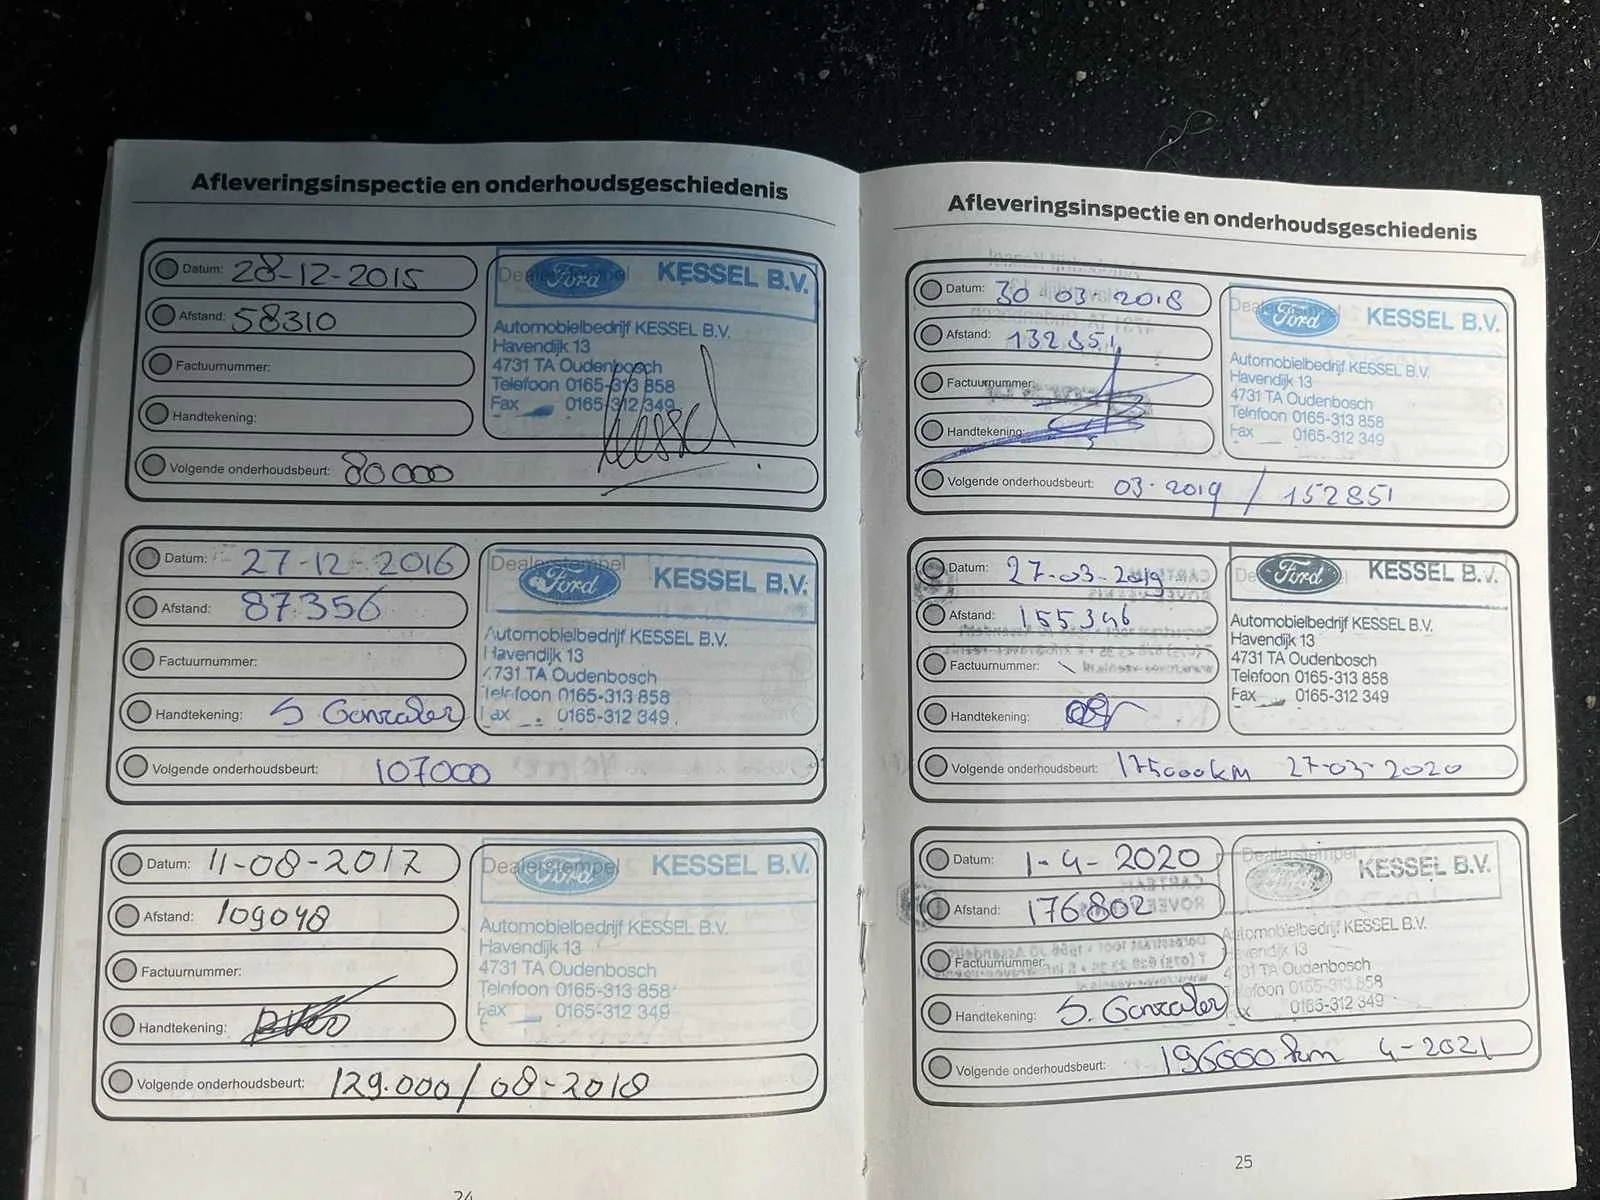 Afleveringsinspectie en onderhoudsgeschiedenis
Datum: 28-12-2015
Afstand: 58310
Factuurnummer:
Handtekening:
Volgende onderhoudsbeurt: 80000
Dealerstempel
Ford KESSEL B.V.
Automobielbedrijf KESSEL B.V.
Havendijk 13
4731 TA Oudenbosch
Telefoon 0165-313 858
Fax 0165-312 349
Kessel
Datum: 27-12-2016
Afstand: 87356
Factuurnummer:
Handtekening: S. Gonzales
Volgende onderhoudsbeurt: 107000
Dealerstempel
Ford KESSEL B.V.
Automobielbedrijf KESSEL B.V.
Havendijk 13
4731 TA Oudenbosch
Telefoon 0165-313 858
Fax 0165-312 349
Datum: 11-08-2017
Afstand: 109048
Factuurnummer:
Handtekening:
Volgende onderhoudsbeurt: 129.000 / 08-2018
Dealerstempel
Ford KESSEL B.V.
Automobielbedrijf KESSEL B.V.
Havendijk 13
4731 TA Oudenbosch
Telefoon 0165-313 858
Fax 0165-312 349
24
Afleveringsinspectie en onderhoudsgeschiedenis
Datum: 30-03-2018
Afstand: 132851
Factuurnummer:
Handtekening:
Volgende onderhoudsbeurt: 03-2019 / 152851
Ford KESSEL B.V.
Automobielbedrijf KESSEL B.V.
Havendijk 13
4731 TA Oudenbosch
Telefoon 0165-313 858
Fax 0165-312 349
Datum: 27-03-2019
Afstand: 155346
Factuurnummer:
Handtekening:
Volgende onderhoudsbeurt: 175000km 27-03-2020
Ford KESSEL B.V.
Automobielbedrijf KESSEL B.V.
Havendijk 13
4731 TA Oudenbosch
Telefoon 0165-313 858
Fax 0165-312 349
Datum: 1-4-2020
Afstand: 176802
Factuurnummer:
Handtekening: S. Gonzales
Volgende onderhoudsbeurt: 196000 km 4-2021
Dealerstempel
KESSEL B.V.
Automobielbedrijf KESSEL B.V.
Havendijk 13
4731 TA Oudenbosch
Telefoon 0165-313 858
0165-312 349
25